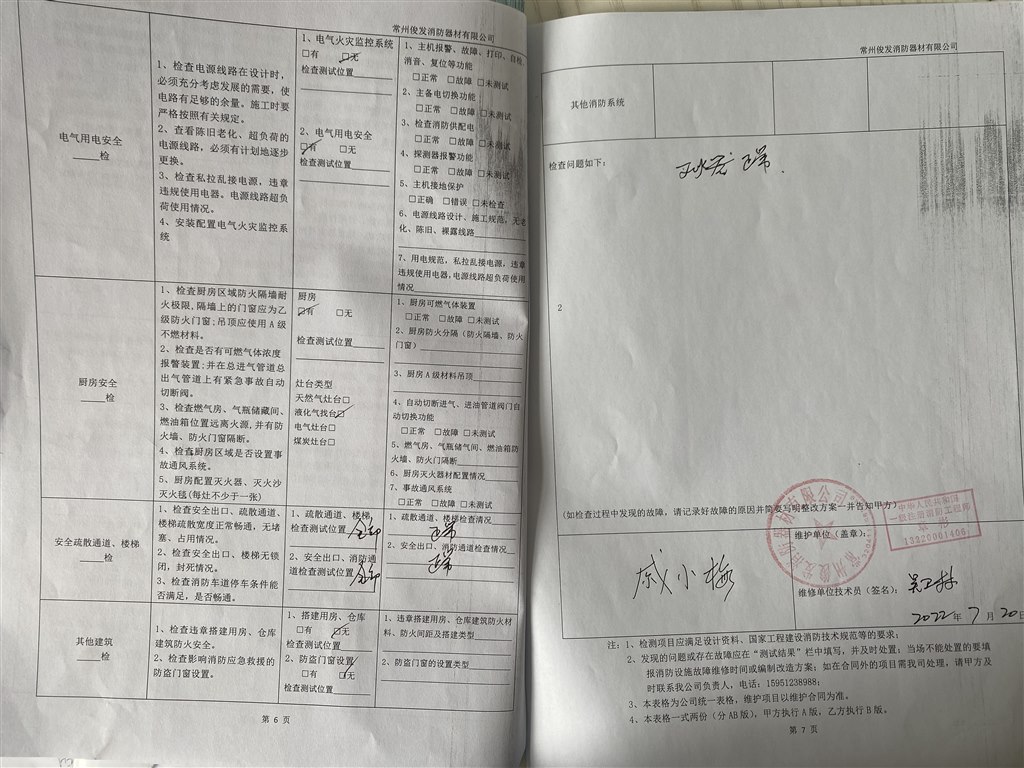 常州俊发消防器材有限公司
电气用电安全
____检
1、检查电源线路在设计时，
必须充分考虑发展的需要，使
电路有足够的余量。施工时要
严格按照有关规定。
2、查看陈旧老化、超负荷的
电源线路，必须有计划地逐步
更换。
3、检查私拉乱接电源，违章
违规使用电器。电源线路超负
荷使用情况。
4、安装配置电气火灾监控系
统
1、电气火灾监控系统
□有 □无
检查测试位置
2、电气用电安全
□有 □无
检查测试位置
1、主机报警、故障、打印、自检、
消音、复位等功能
□正常 □故障 □未测试
2、主备电切换功能
□正常 □故障 □未测试
3、检查消防供配电
□正常 □故障 □未测试
4、探测器报警功能
□正常 □故障 □未测试
5、主机接地保护
□正确 □错误 □未检查
6、电源线路设计、施工规范，无老
化、陈旧、裸露线路
7、用电规范，私拉乱接电源，违章
违规使用电器，电源线路超负荷使用
情况
厨房安全
____检
1、检查厨房区域防火隔墙耐
火极限,隔墙上的门窗应为乙
级防火门窗;吊顶应使用 A 级
不燃材料。
2、检查是否有可燃气体浓度
报警装置;并在总进气管道总
出气管道上有紧急事故自动
切断阀。
3、检查燃气房、气瓶储藏间、
燃油箱位置远离火源,并有防
火墙、防火门窗隔断。
4、检查厨房区域是否设置事
故通风系统。
5、厨房配置灭火器、灭火沙
灭火毯(每灶不少于一张)
厨房
□有 □无
检查测试位置
灶台类型
天然气灶台□
液化气找台□
电气灶台□
煤炭灶台□
1、厨房可燃气体装置
□正常 □故障 □未测试
2、厨房防火分隔（防火隔墙、防火
门窗）
3、厨房 A 级材料吊顶
4、自动切断进气、进油管道阀门自
动切换功能
□正常 □故障 □未测试
5、燃气房、气瓶储气间、燃油箱防
火墙、防火门隔断
6、厨房灭火器材配置情况
7、事故通风系统
□正常 □故障 □未测试
安全疏散通道、楼梯
____检
1、检查安全出口、疏散通道、
楼梯疏散宽度正常畅通，无堵
塞、占用情况。
2、检查安全出口、楼梯无锁
闭，封死情况。
3、检查消防车道停车条件能
否满足，是否畅通。
1、疏散通道、楼梯
检查测试位置 全部
2、安全出口、消防通
道检查测试位置 全部
1、疏散通道、楼梯检查情况
正常
2、安全出口、消防通道检查情况
正常
其他建筑
____检
1、检查违章搭建用房、仓库
建筑防火安全。
2、检查影响消防应急救援的
防盗门窗设置。
1、搭建用房、仓库
□有 □无
检查测试位置
2、防盗门窗设置
□有 □无
检查测试位置
1、违章搭建用房、仓库建筑防火材
料、防火间距及搭建类型
2、防盗门窗的设置类型
第 6 页
常州俊发消防器材有限公司
其他消防系统
检查问题如下：
正常.
2
(如检查过程中发现的故障，请记录好故障的原因并简要写明整改方案一并告知甲方)
戚小梅
维护单位（盖章）：
中华人民共和国
一级注册消防工程师
维修单位技术员（签名）：
2022年 7 月 20日
注：1、检测项目应满足设计资料、国家工程建设消防技术规范等的要求；
2、发现的问题或存在故障应在“测试结果”栏中填写，并及时处置，当场不能处置的要填
报消防设施故障维修时间或编制改造方案；如在合同外的项目需我司处理，请甲方及
时联系我公司负责人，电话：15951238988；
3、本表格为公司统一表格，维护项目以维护合同为准。
4、本表格一式两份（分 AB 版），甲方执行 A 版，乙方执行 B 版。
第 7 页